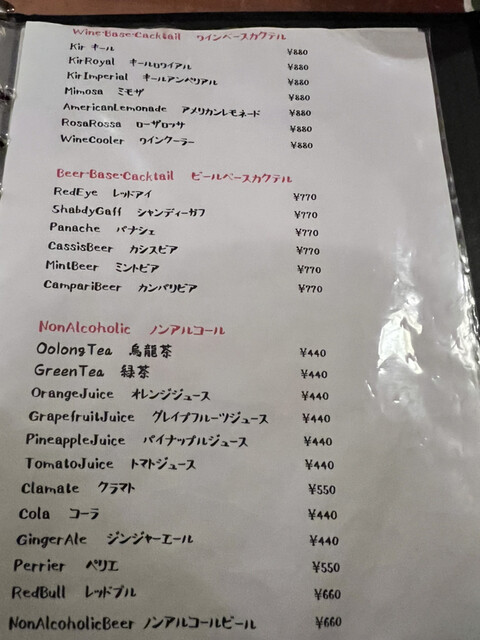 Wine·Base·Cacktail ワインベースカクテル
Kir キール ¥880
KirRoyal キールロワイアル ¥880
KirImperial キールアンペリアル ¥880
Mimosa ミモザ ¥880
AmericanLemonade アメリカンレモネード ¥880
RosaRossa ローザロッサ ¥880
WineCooler ワインクーラー ¥880
Beer·Base·Cacktail ビールベースカクテル
RedEye レッドアイ ¥770
ShabdyGaff シャンディーガフ ¥770
Panache パナシェ ¥770
CassisBeer カシスビア ¥770
MintBeer ミントビア ¥770
CampariBeer カンパリビア ¥770
NonAlcoholic ノンアルコール
OolongTea 烏龍茶 ¥440
GreenTea 緑茶 ¥440
OrangeJuice オレンジジュース ¥440
GrapefruitJuice グレイプフルーツジュース ¥440
PineappleJuice パイナップルジュース ¥440
TomatoJuice トマトジュース ¥440
Clamate クラマト ¥550
Cola コーラ ¥440
GingerAle ジンジャーエール ¥440
Perrier ペリエ ¥550
RedBull レッドブル ¥660
NonAlcoholicBeer ノンアルコールビール ¥660